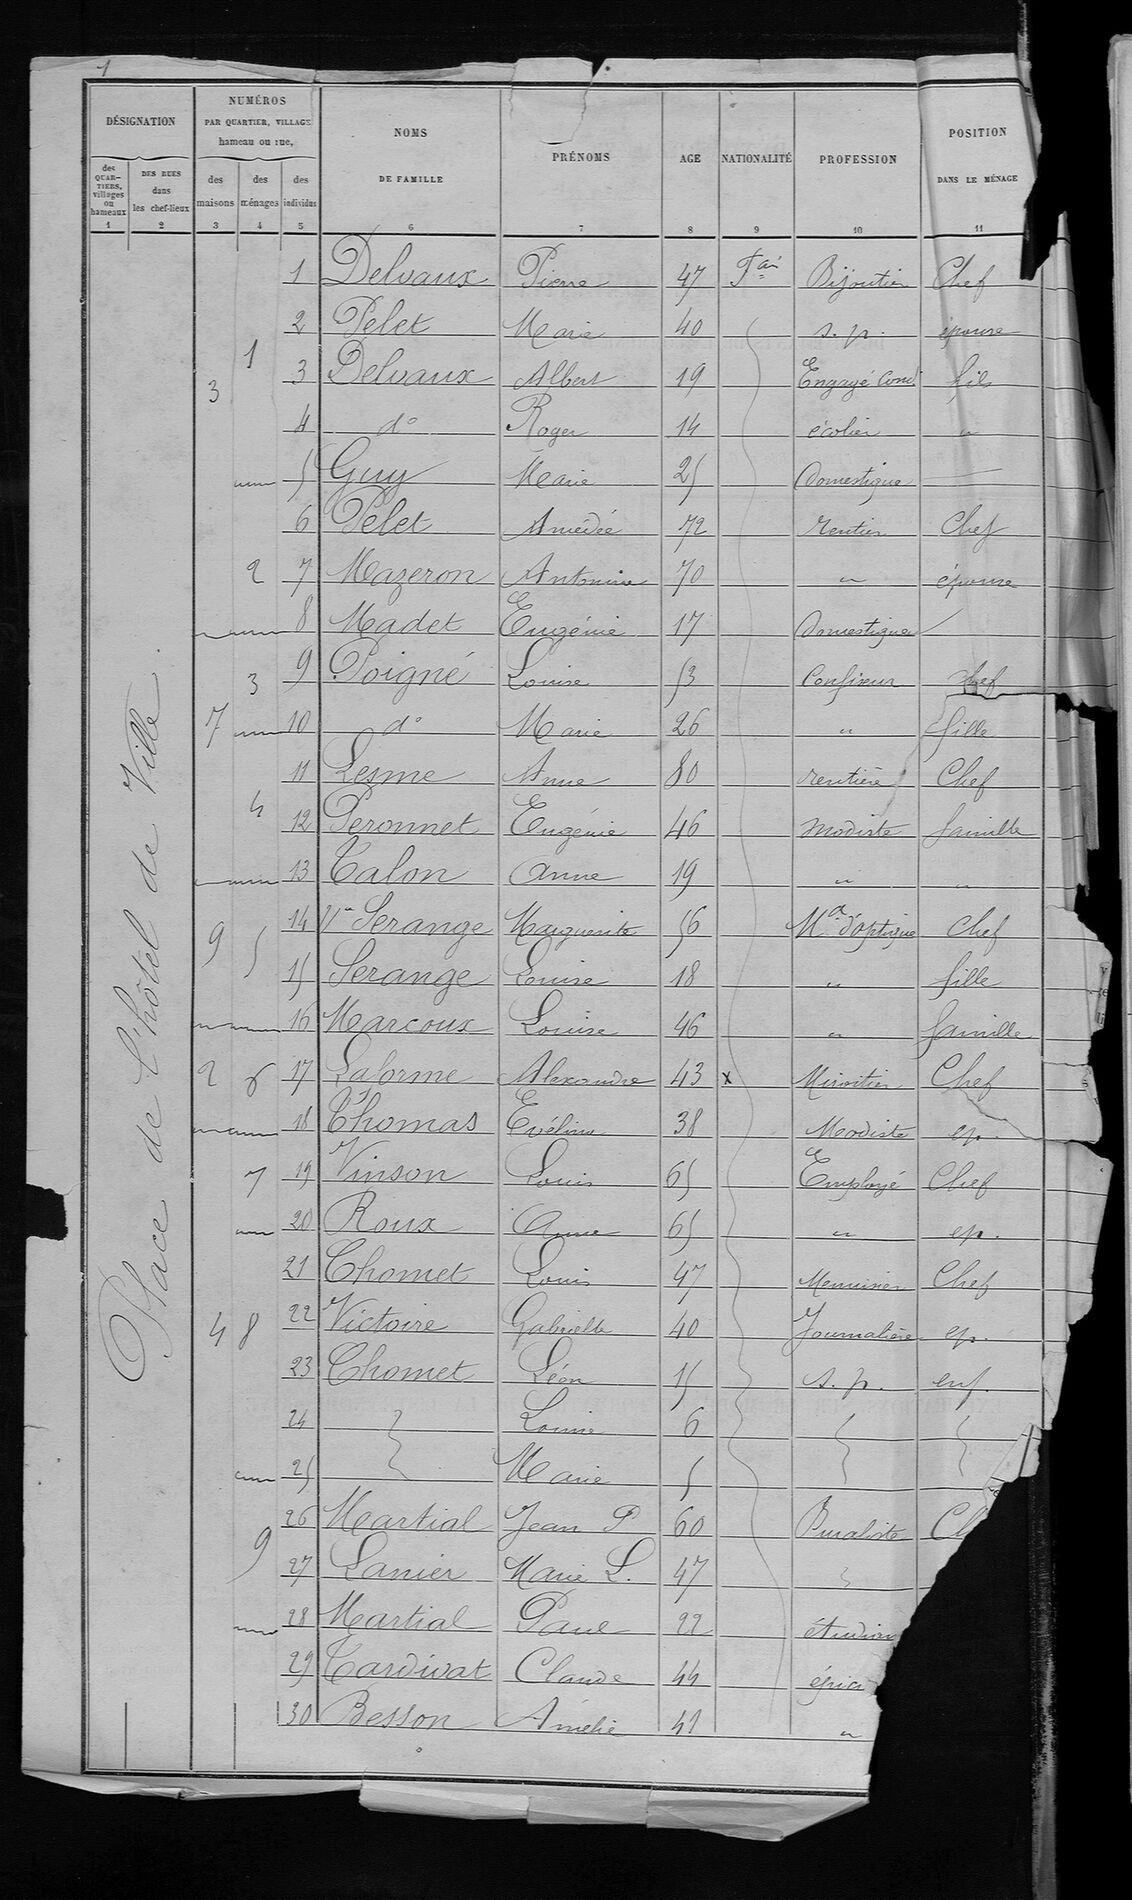 1
DÉSIGNATION
NUMÉROS PAR QUARTIER, VILLAGE hameau ou rue,
NOMS DE FAMILLE
PRÉNOMS
AGE
NATIONALITÉ
PROFESSION
POSITION DANS LE MÉNAGE
des QUARTIERS, villages ou hameaux
DES RUES dans les chef-lieux
des maisons
des ménages
des individus
1 2 3 4 5 6 7 8 9 10 11
Place de l'hôtel de Ville
1 Delvaux Pierre 47 Fse Bijoutier Chef
2 Pelet Marie 40 s. p. épouse
3 1 3 Delvaux Albert 19 Engagé Cond fils
4 do Roger 14 écolier "
5 Guy Marie 25 Domestique
6 Pelet Amédée 72 rentier Chef
2 7 Mazeron Antonine 70 " épouse
8 Madet Eugénie 17 Domestique
3 9 Poigné Louise 53 Confiseur chef
7 10 do Marie 26 " fille
11 Lesme Anne 80 rentière Chef
4 12 Peronnet Eugénie 46 modiste famille
13 Talon Anne 19 " "
9 5 14 Ve Serange Marguerite 56 Md d'optique Chef
15 Serange Louise 18 " fille
16 Marcoux Louise 46 " famille
2 6 17 Laforme Alexandre 43 x Miroitier Chef
18 Thomas Evélina 38 Modiste ep.
7 19 Vinson Louis 65 Employé Chef
20 Roux Anne 65 " ep.
21 Chomet Louis 47 Menuisier Chef
4 8 22 Victoire Gabrielle 40 Journalière ep.
23 Chomet Léon 15 s. p. enf.
24 Louise 6
25 Marie 5
26 Martial Jean P 60 Buraliste Ch
9 27 Lanier Marie L. 47
28 Martial Paul 22 étudian
29 Tardivat Claude 44 épici
30 Besson Amélie 41 "